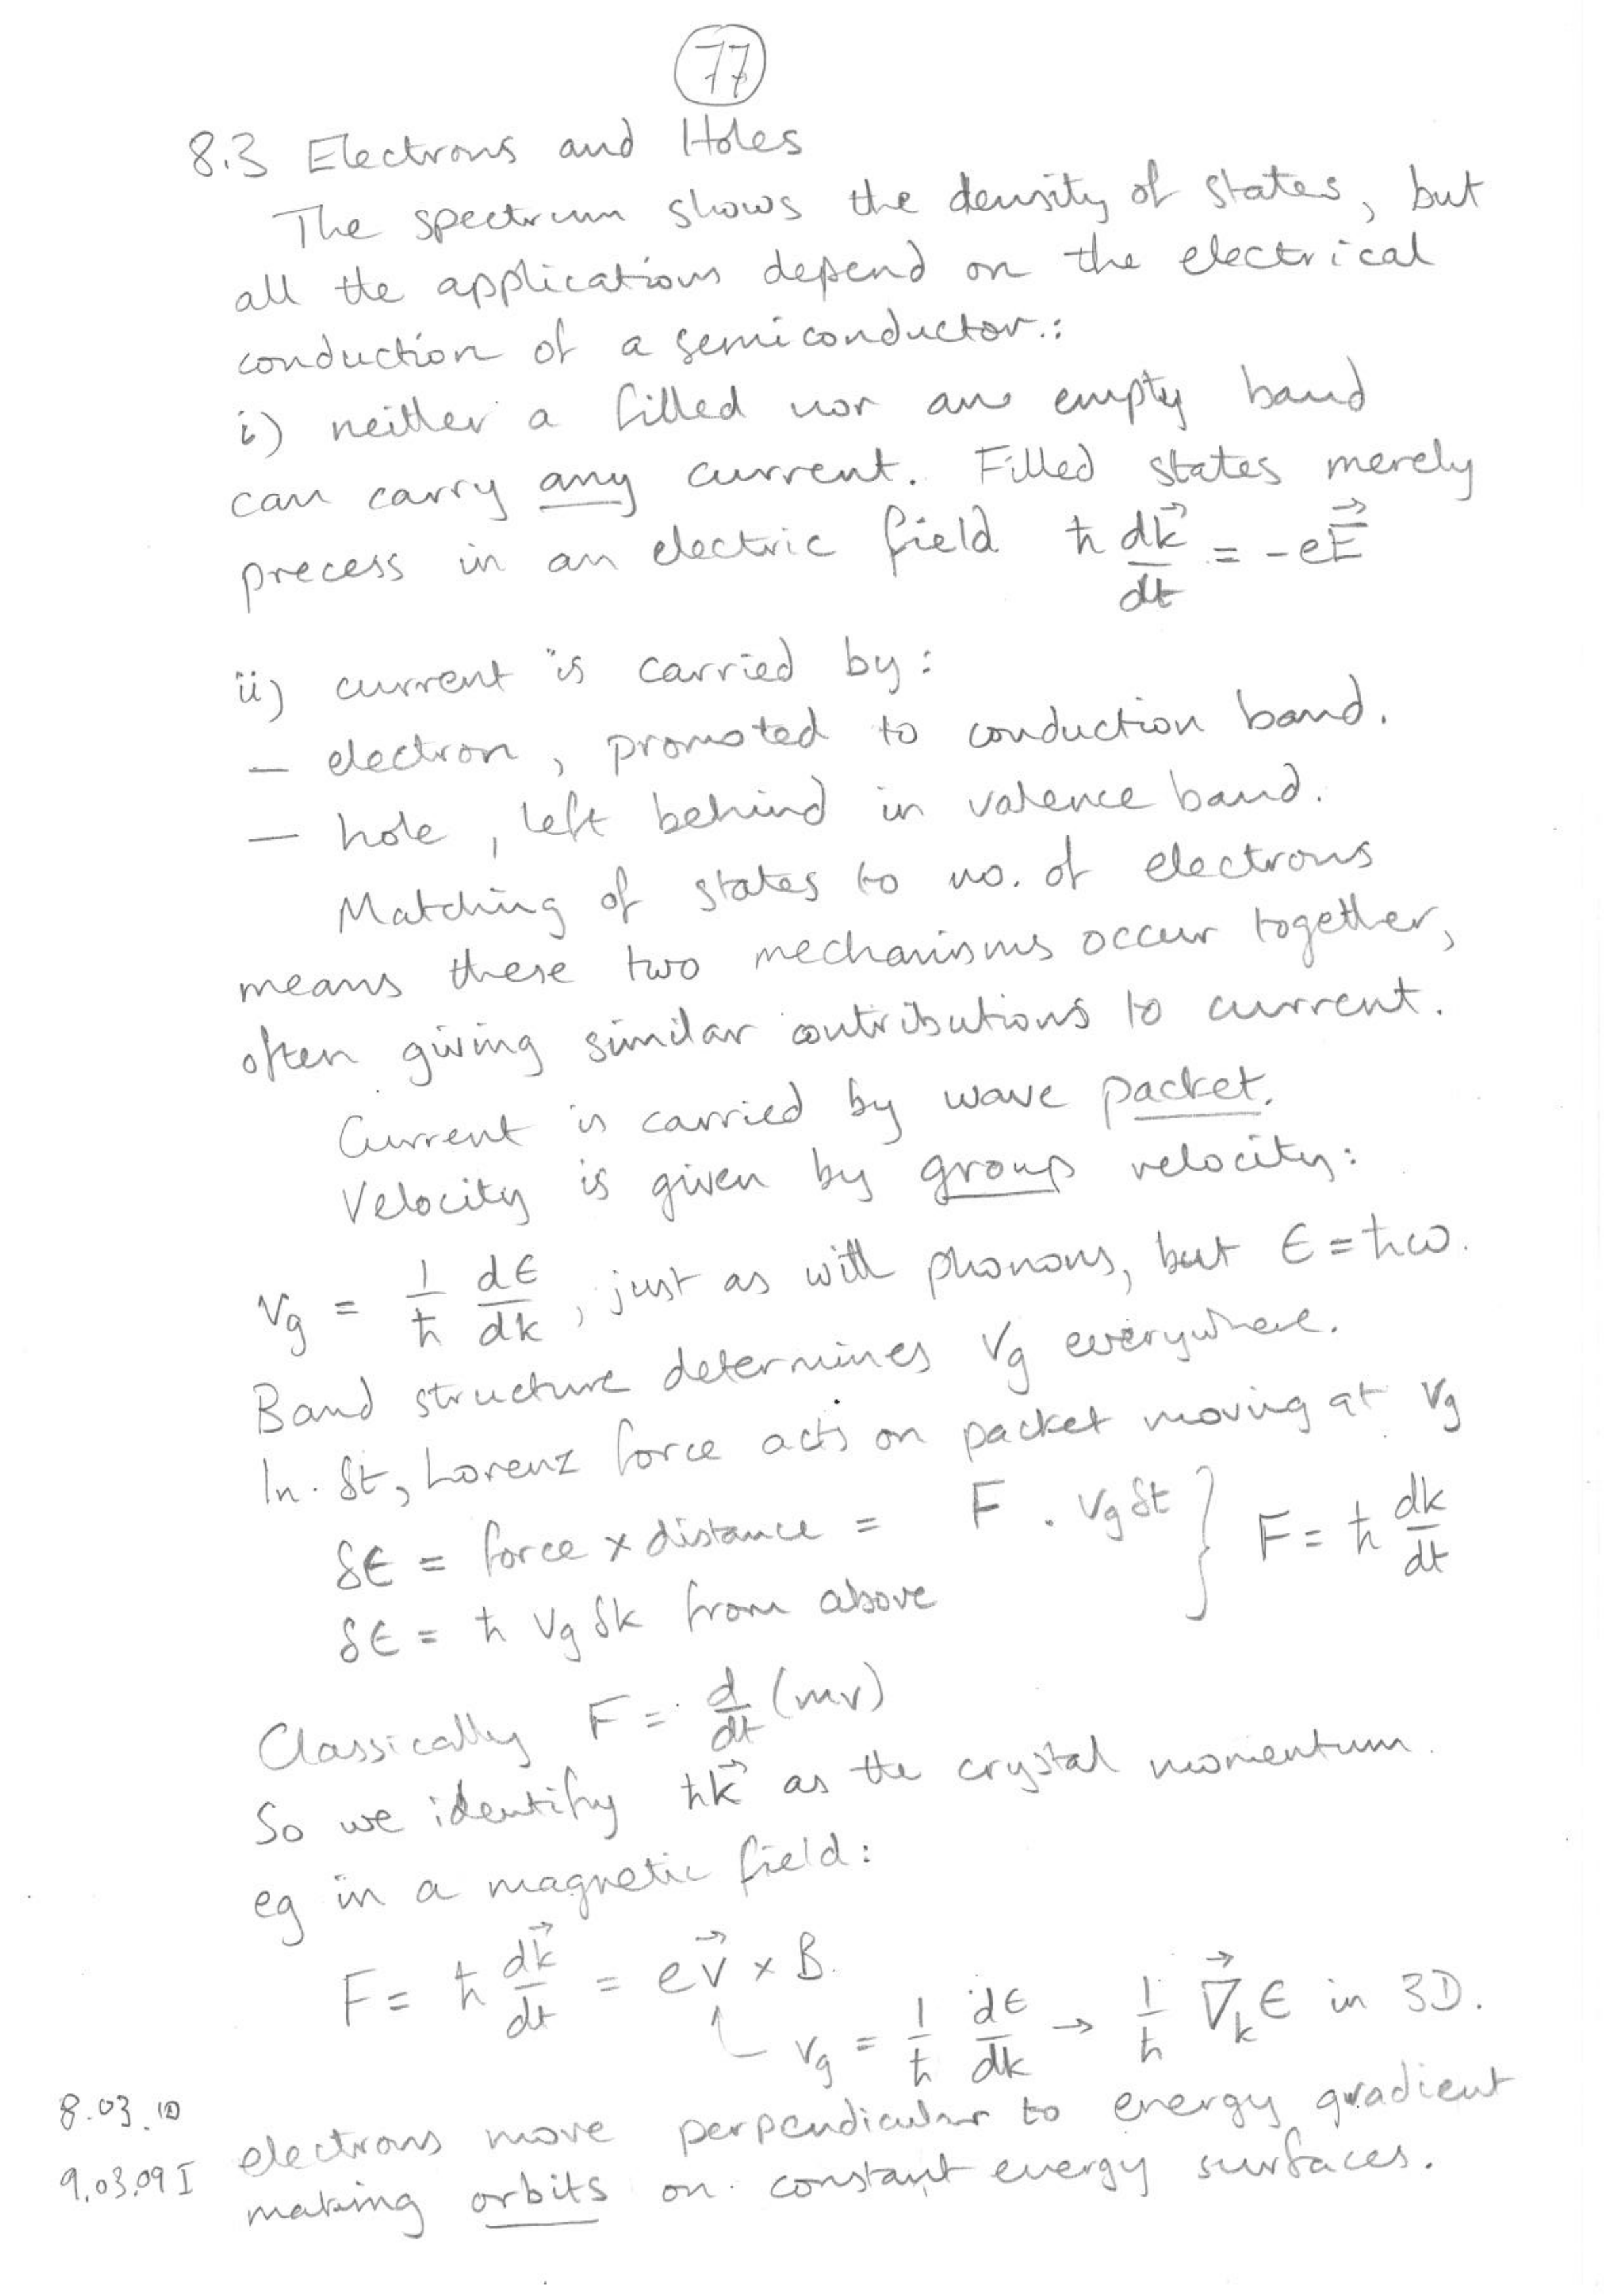 77
8.3 Electrons and Holes
The spectrum shows the density of states, but
all the applications depend on the electrical
conduction of a semiconductor.:
i) neither a filled nor an empty band
can carry any current. Filled states merely
precess in an electric field ħ dk⃗/dt = -eE⃗
ii) current is carried by:
– electron, promoted to conduction band.
– hole, left behind in valence band.
Matching of states to no. of electrons
means these two mechanisms occur together,
often giving similar contributions to current.
Current is carried by wave packet.
Velocity is given by group velocity:
vg = 1/ħ dϵ/dk, just as with phonons, but ϵ = ħω.
Band structure determines vg everywhere.
In δt, Lorenz force acts on packet moving at vg
δϵ = force × distance = F . vg δt } F = ħ dk/dt
δϵ = ħ vg δk from above
Classically F = d/dt (mv)
So we identify ħk⃗ as the crystal momentum.
eg in a magnetic field:
F = ħ dk⃗/dt = ev⃗ × B.
vg = 1/ħ dϵ/dk → 1/ħ ∇⃗k ϵ in 3D.
8.03.10
electrons move perpendicular to energy gradient
9.03.09 I
making orbits on constant energy surfaces.